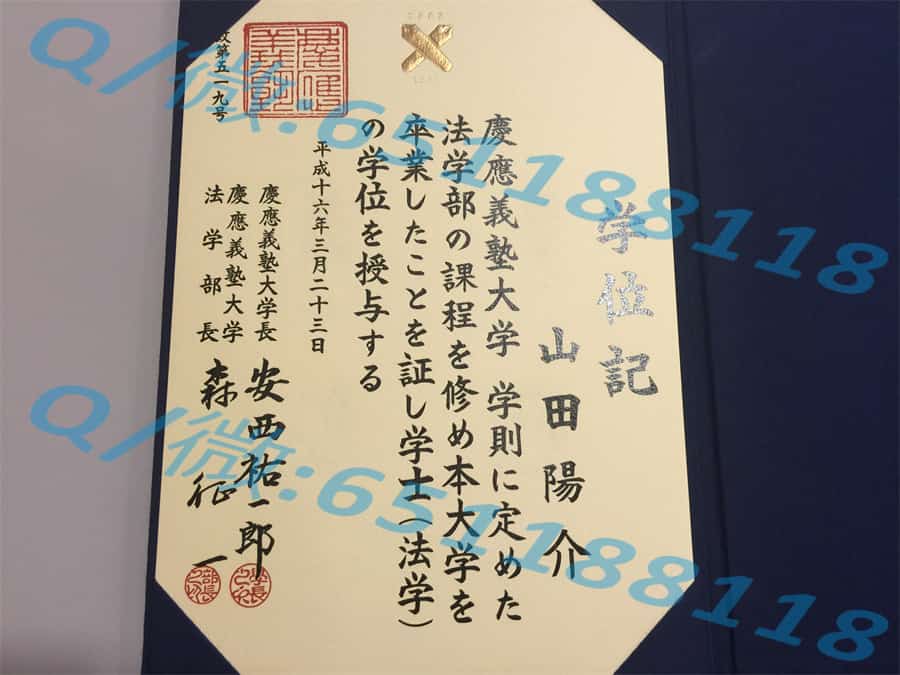 学位記
山田陽介
慶應義塾大学 学則に定めた
法学部の課程を修め本大学を
卒業したことを証し学士(法学)
の学位を授与する
平成十六年三月二十三日
慶應義塾大学長 安西祐一郎
慶應義塾大学
法学部長 森征一
第五一九号
Q/微:651188118
Q/微:651188118